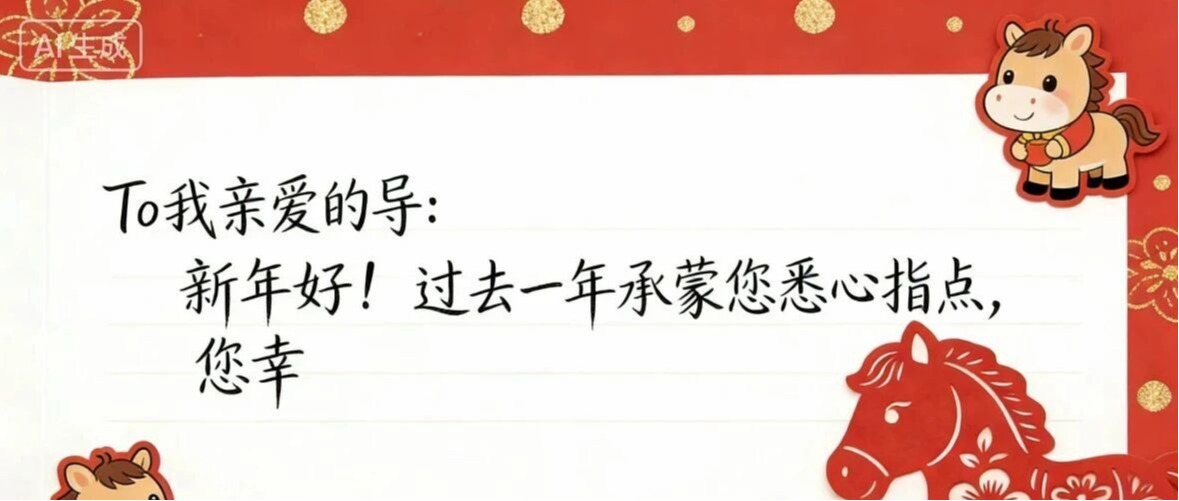 AI生成
To我亲爱的导:
新年好! 过去一年承蒙您悉心指点,
您幸